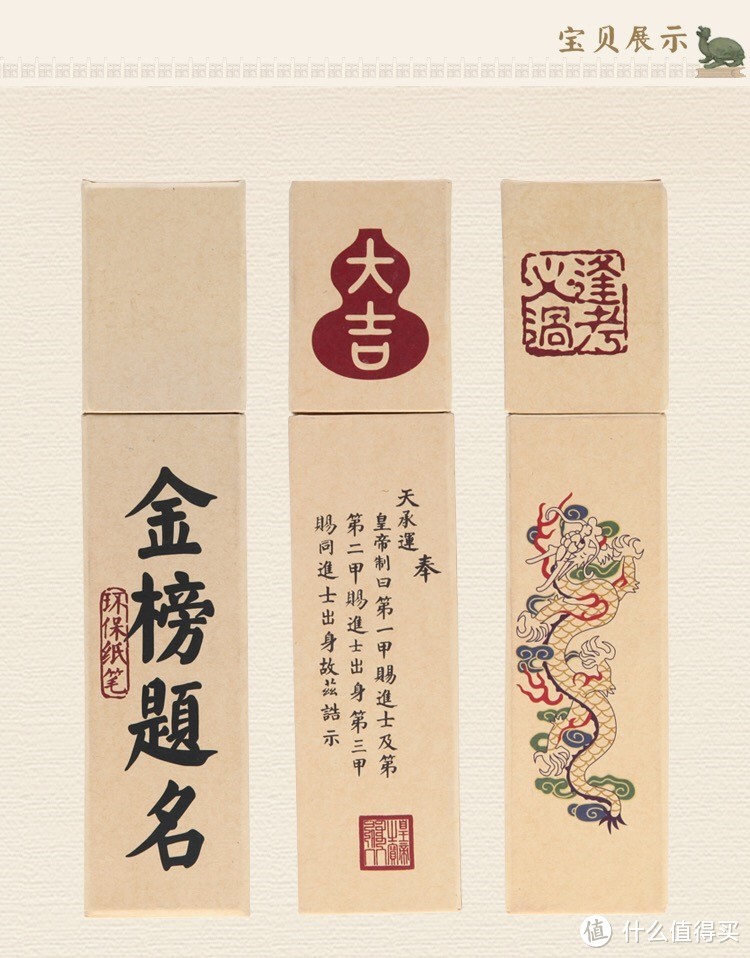 宝贝展示
金榜題名
环保纸笔
大吉
奉
天承運
皇帝制曰第一甲賜進士及第
第二甲賜進士出身第三甲
賜同進士出身故茲誥示
皇帝
之寶
逢考
必過
值 什么值得买